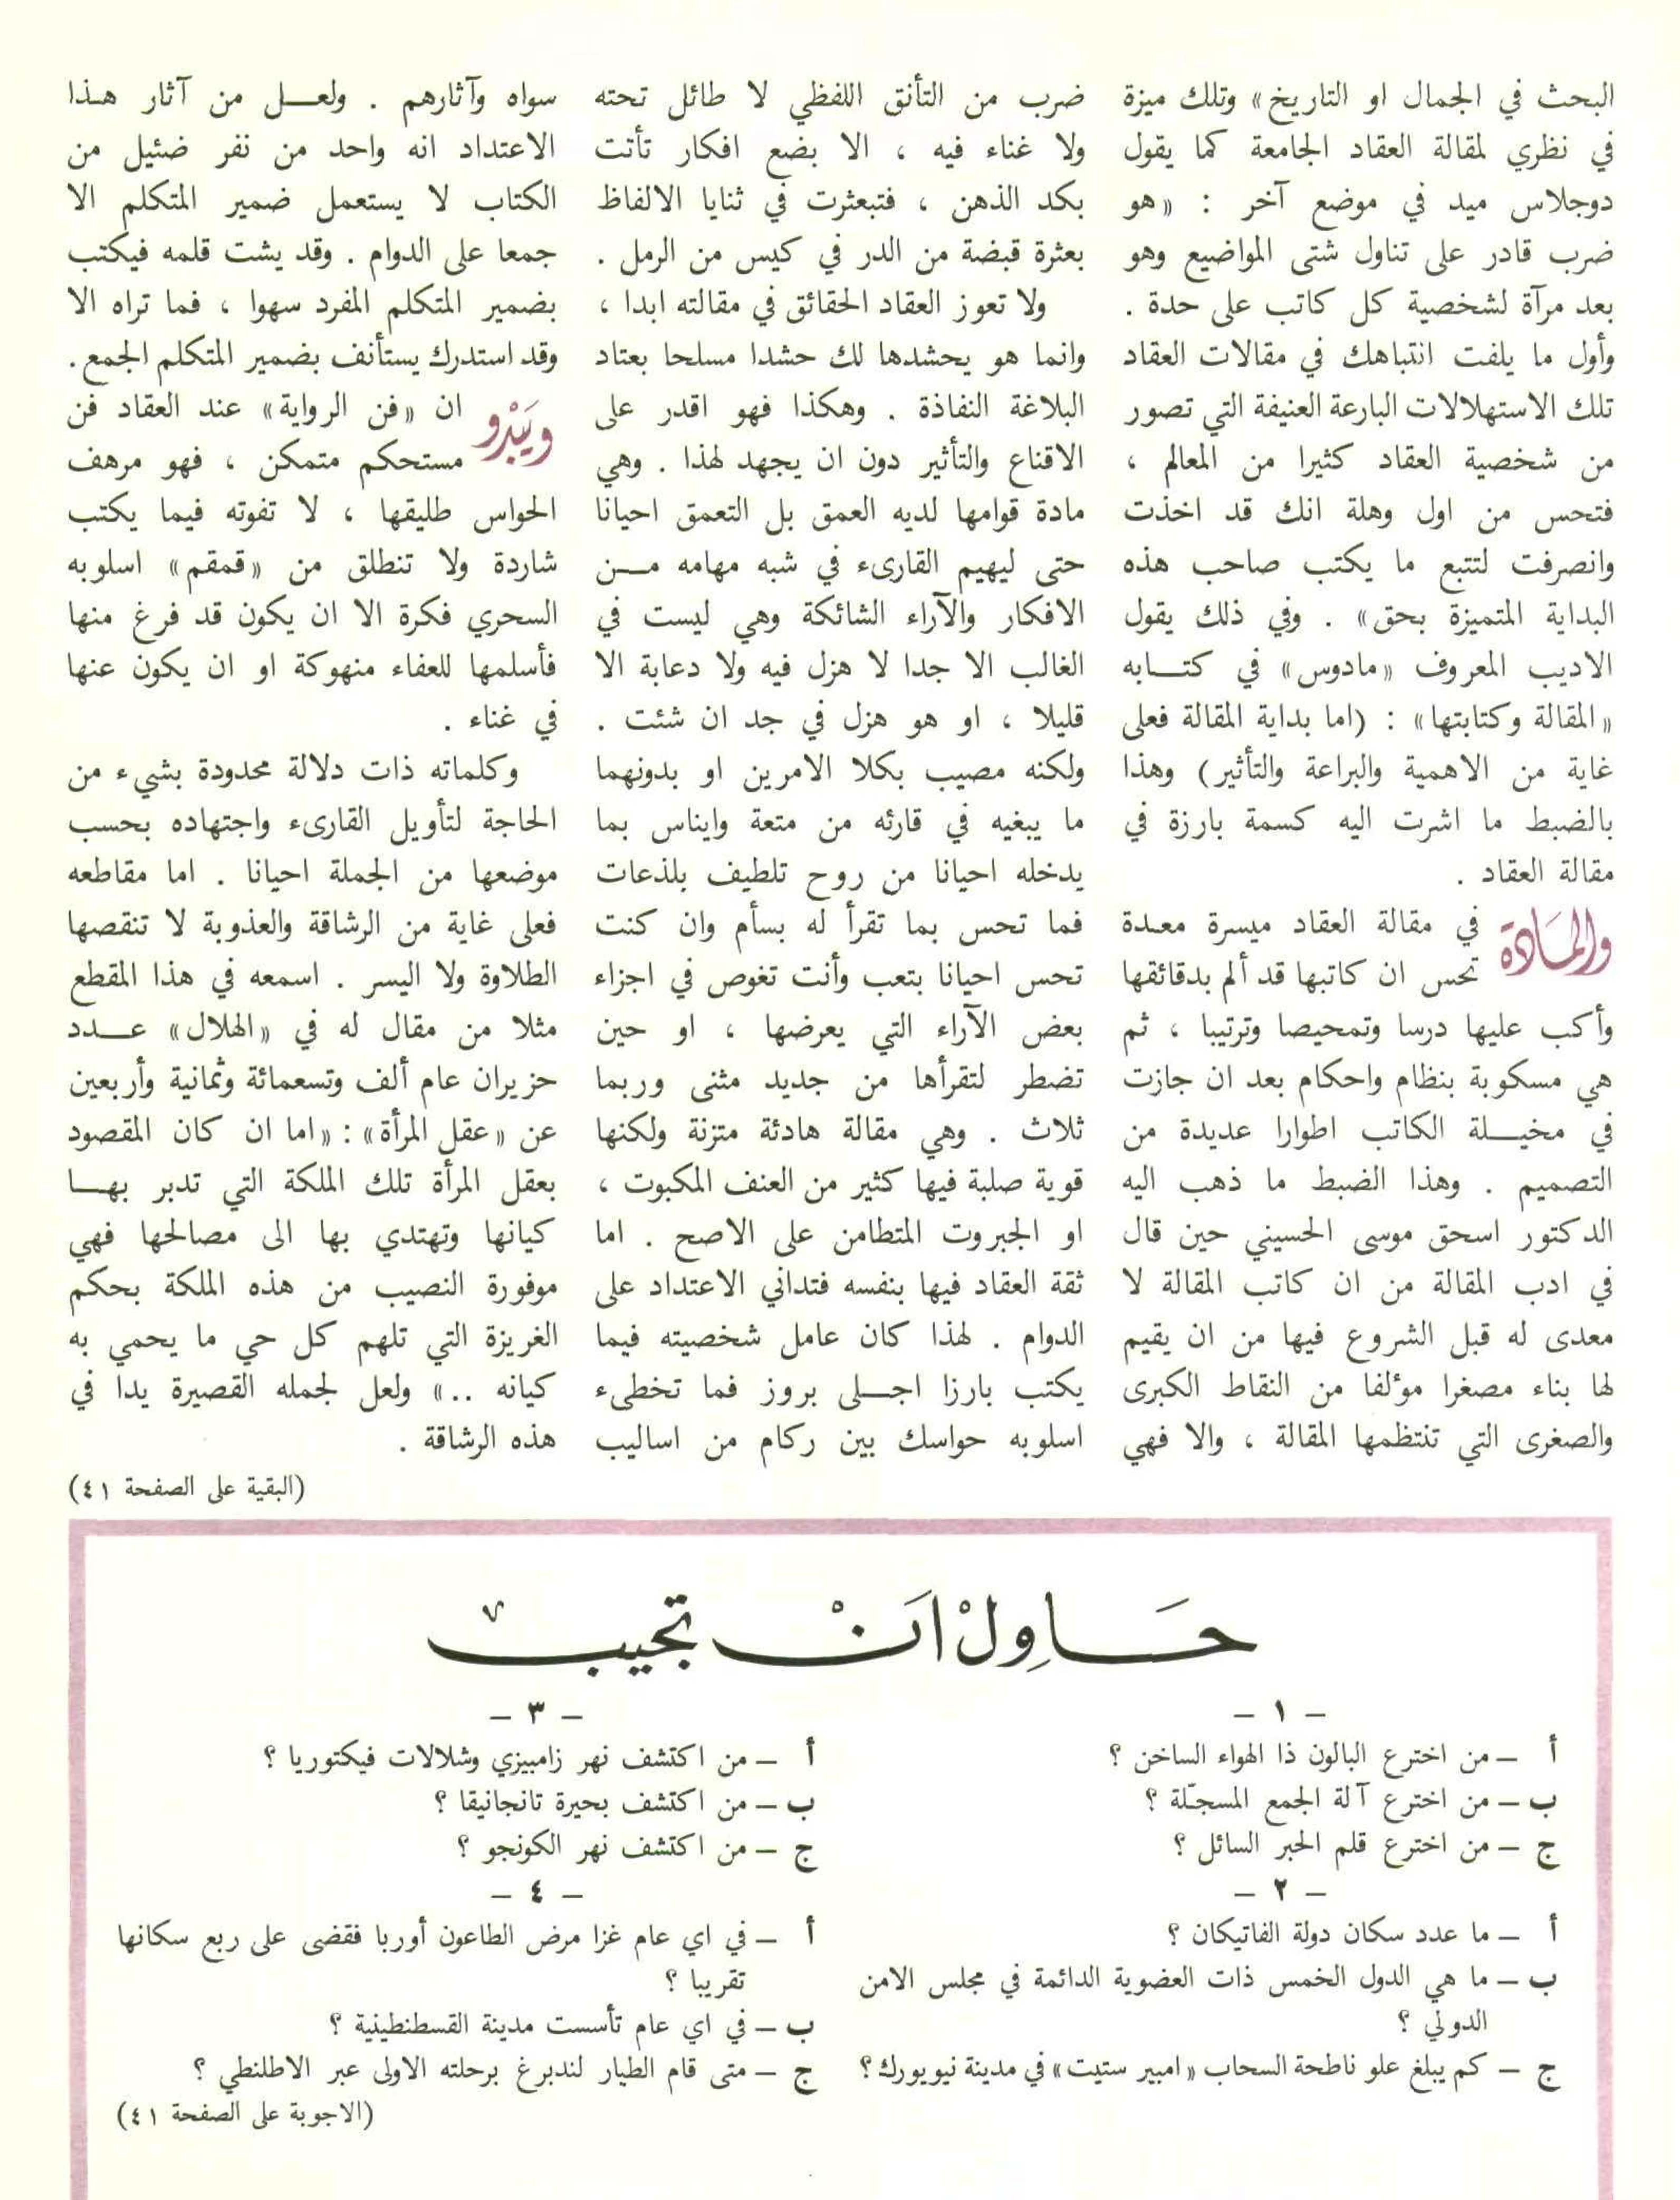 البحث في الجمال او التاريخ» وتلك ميزة
في نظري لمقالة العقاد الجامعة كما يقول
دوجلاس ميد في موضع آخر : «هو
ضرب قادر على تناول شتى المواضيع وهو
بعد مرآة لشخصية كل كاتب على حدة .
وأول ما يلفت انتباهك في مقالات العقاد
تلك الاستهلالات البارعة العنيفة التي تصور
من شخصية العقاد كثيرا من المعالم ،
فتحس من اول وهلة انك قد اخذت
وانصرفت لتتبع ما يكتب صاحب هذه
البداية المتميزة بحق» . وفي ذلك يقول
الاديب المعروف «مادوس» في كتابه
«المقالة وكتابتها» : (اما بداية المقالة فعلى
غاية من الاهمية والبراعة والتأثير) وهذا
بالضبط ما اشرت اليه كسمة بارزة في
مقالة العقاد .
والمَادَة في مقالة العقاد ميسرة معدة
تحس ان كاتبها قد ألم بدقائقها
وأكب عليها درسا وتمحيصا وترتيبا ، ثم
هي مسكوبة بنظام واحكام بعد ان جازت
في مخيلة الكاتب اطوارا عديدة من
التصميم . وهذا الضبط ما ذهب اليه
الدكتور اسحق موسى الحسيني حين قال
في ادب المقالة من ان كاتب المقالة لا
معدى له قبل الشروع فيها من ان يقيم
لها بناء مصغرا مؤلفا من النقاط الكبرى
والصغرى التي تنتظمها المقالة ، والا فهي
ضرب من التأنق اللفظي لا طائل تحته
ولا غناء فيه ، الا بضع افكار تأتت
بكد الذهن ، فتبعثرت في ثنايا الالفاظ
بعثرة قبضة من الدر في كيس من الرمل .
ولا تعوز العقاد الحقائق في مقالته ابدا ،
وانما هو يحشدها لك حشدا مسلحا بعتاد
البلاغة النفاذة . وهكذا فهو اقدر على
الاقناع والتأثير دون ان يجهد لهذا . وهي
مادة قوامها لديه العمق بل التعمق احيانا
حتى ليهيم القارىء في شبه مهامه من
الافكار والآراء الشائكة وهي ليست في
الغالب الا جدا لا هزل فيه ولا دعابة الا
قليلا ، او هو هزل في جد ان شئت .
ولكنه مصيب بكلا الامرين او بدونهما
ما يبغيه في قارئه من متعة وايناس بما
يدخله احيانا من روح تلطيف بلذعات
فما تحس بما تقرأ له بسأم وان كنت
تحس احيانا بتعب وأنت تغوص في اجزاء
بعض الآراء التي يعرضها ، او حين
تضطر لتقرأها من جديد مثنى وربما
ثلاث . وهي مقالة هادئة متزنة ولكنها
قوية صلبة فيها كثير من العنف المكبوت ،
او الجبروت المتطامن على الاصح . اما
ثقة العقاد فيها بنفسه فتداني الاعتداد على
الدوام . لهذا كان عامل شخصيته فيما
يكتب بارزا اجلى بروز فما تخطىء
اسلوبه حواسك بين ركام من اساليب
سواه وآثارهم . ولعل من آثار هذا
الاعتداد انه واحد من نفر ضئيل من
الكتاب لا يستعمل ضمير المتكلم الا
جمعا على الدوام . وقد يشت قلمه فيكتب
بضمير المتكلم المفرد سهوا ، فما تراه الا
وقد استدرك يستأنف بضمير المتكلم الجمع .
ويَبْدو ان «فن الرواية» عند العقاد فن
مستحكم متمكن ، فهو مرهف
الحواس طليقها ، لا تفوته فيما يكتب
شاردة ولا تنطلق من «قمقم» اسلوبه
السحري فكرة الا ان يكون قد فرغ منها
فأسلمها للعفاء منهوكة او ان يكون عنها
في غناء .
وكلماته ذات دلالة محدودة بشيء من
الحاجة لتأويل القارىء واجتهاده بحسب
موضعها من الجملة احيانا . اما مقاطعه
فعلى غاية من الرشاقة والعذوبة لا تنقصها
الطلاوة ولا اليسر . اسمعه في هذا المقطع
مثلا من مقال له في «الهلال» عدد
حزيران عام ألف وتسعمائة وثمانية وأربعين
عن «عقل المرأة» : «اما ان كان المقصود
بعقل المرأة تلك الملكة التي تدبر بها
كيانها وتهتدي بها الى مصالحها فهي
موفورة النصيب من هذه الملكة بحكم
الغريزة التي تلهم كل حي ما يحمي به
كيانه ..» ولعل لجمله القصيرة يدا في
هذه الرشاقة .
(البقية على الصفحة ٤١)
حَاوِلْ اَنْ تجيب
– ١ –
أ – من اخترع البالون ذا الهواء الساخن ؟
ب – من اخترع آلة الجمع المسجّلة ؟
ج – من اخترع قلم الحبر السائل ؟
– ٢ –
أ – ما عدد سكان دولة الفاتيكان ؟
ب – ما هي الدول الخمس ذات العضوية الدائمة في مجلس الامن
الدولي ؟
ج – كم يبلغ علو ناطحة السحاب «امبير ستيت» في مدينة نيويورك ؟
– ٣ –
أ – من اكتشف نهر زامبيزي وشلالات فيكتوريا ؟
ب – من اكتشف بحيرة تانجانيقا ؟
ج – من اكتشف نهر الكونجو ؟
– ٤ –
أ – في اي عام غزا مرض الطاعون أوربا فقضى على ربع سكانها
تقريبا ؟
ب – في اي عام تأسست مدينة القسطنطينية ؟
ج – متى قام الطيار لندبرغ برحلته الاولى عبر الاطلنطي ؟
(الاجوبة على الصفحة ٤١)